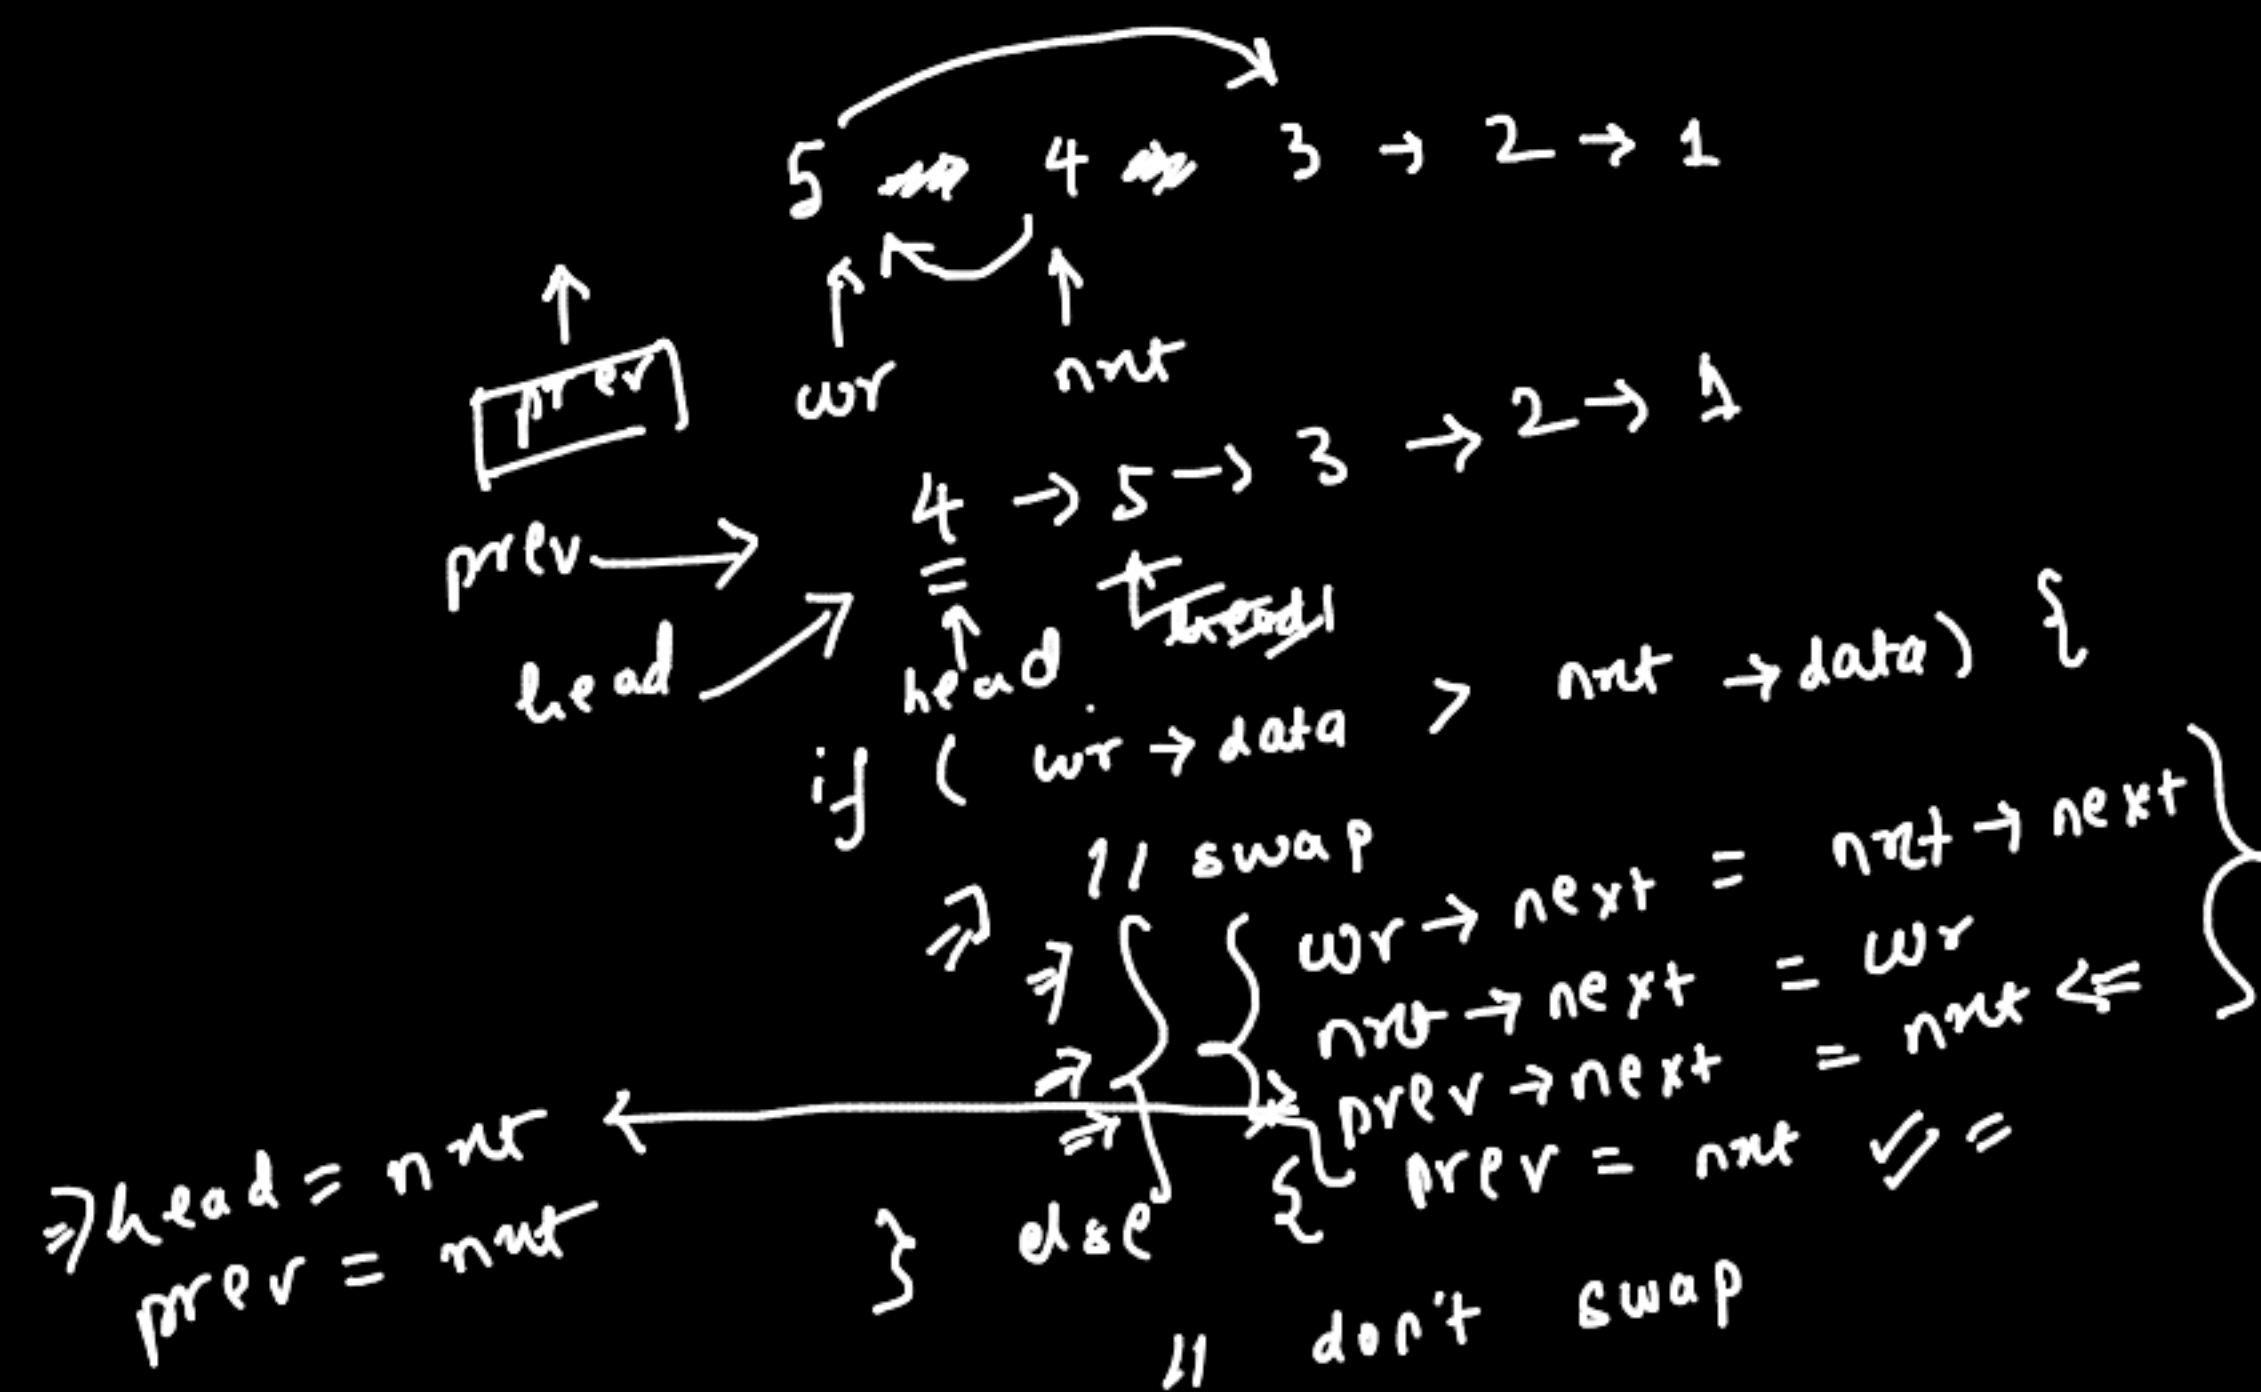 5 4 3 → 2 → 1
prev cur nxt
4 → 5 → 3 → 2 → 1
prev →
head → head head
if ( cur → data > nxt → data) {
// swap
cur → next = nxt → next
nxt → next = cur
prev → next = nxt
prev = nxt
head = nxt
prev = nxt
} else {
// don't swap